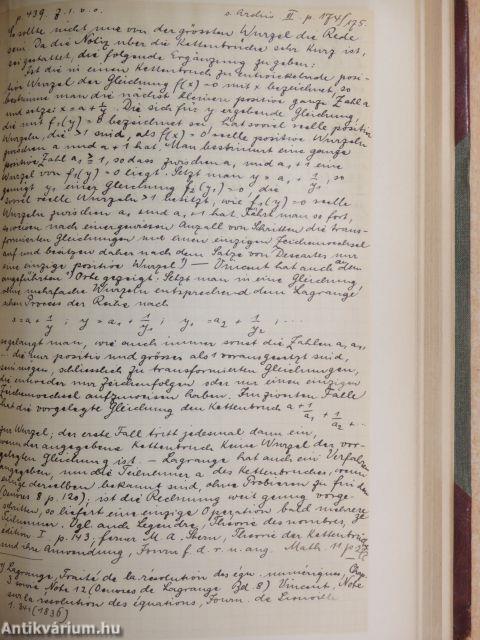 p. 439. Z. 1. v. o. s. Archiv II. p. 174/175.
Es sollte nicht nur von der grössten Wurzel die Rede
sein. Da die Notiz über die Kettenbrüche sehr kurz ist,
sei gestattet, die folgende Ergänzung zu geben:
Ist die in einen Kettenbruch zu entwickelnde posi-
tive Wurzel der Gleichung f(x)=0 mit x bezeichnet, so
bestimme man die nächst kleinere positive ganze Zahl a
und setze: x = a + 1/y. Die sich für y ergebende Gleichung,
die mit f₁(y)=0 bezeichnet sei, hat soviel reelle positive
Wurzeln, die >1 sind, als f(x)=0 reelle positive Wurzeln
zwischen a und a+1 hat. Man bestimmt eine ganze
positive Zahl a₁ ≧ 1, so dass zwischen a₁ und a₁+1 eine
Wurzel von f₁(y)=0 liegt. Setzt man y = a₁ + 1/y₁, so
genügt y₁ einer Gleichung f₂(y₁)=0, die
soviel reelle Wurzeln >1 besitzt, wie f₁(y)=0 reelle
Wurzeln zwischen a₁ und a₁+1 hat. Fährt man so fort,
so weisen nach einer gewissen Anzahl von Schritten die trans-
formierten Gleichungen nur einen einzigen Zeichenwechsel
auf und besitzen daher nach dem Satze von Descartes nur
eine einzige positive Wurzel.¹) — Vincent hat auch an dem
angeführten Orte gezeigt: Setzt man in eine Gleichung
ohne mehrfache Wurzeln entsprechend dem Lagrange
schen Process der Reihe nach
x = a + 1/y ; y = a₁ + 1/y₁ ; y₁ = a₂ + 1/y₂ ; ...
so gelangt man, wie auch immer sonst die Zahlen a, a₁,
... die nur positiv und grösser als 1 vorausgesetzt sind,
sein mögen, schliesslich zu transformierten Gleichungen,
die entweder nur Zeichenfolgen oder nur einen einzigen
Zeichenwechsel aufzuweisen haben. Im zweiten Falle
hat die vorgelegte Gleichung den Kettenbruch a + 1/a₁ + 1/a₂ + ..
zur Wurzel; der erste Fall tritt jedesmal dann ein,
wenn der angegebene Kettenbruch keine Wurzel der vor-
gelegten Gleichung ist. — Lagrange hat auch ein Verfahren
angegeben, um die Teilnenner a des Kettenbruches, wenn
einige derselben bekannt sind, ohne Probieren zu finden
(Oeuvres 8 p. 120); ist die Rechnung weit genug vorge-
schritten, so liefert eine einzige Operation bald mehrere
Teilnenner. Vgl. auch Legendre, Théorie des nombres,
édition I p. 143, ferner M. A. Stern, Theorie der Kettenbrüche
und ihre Anwendung, Journ. f. d. r. u. ang. Math. 11
¹) Lagrange, Traité de la résolution des équ. numériques, Chap.
3 sowie Note 12 (Oeuvres de Lagrange Bd. 8) Vincent, Note
sur la résolution des équations, Journ. de Liouville
1. 341 (1836)
Antikvárium.hu